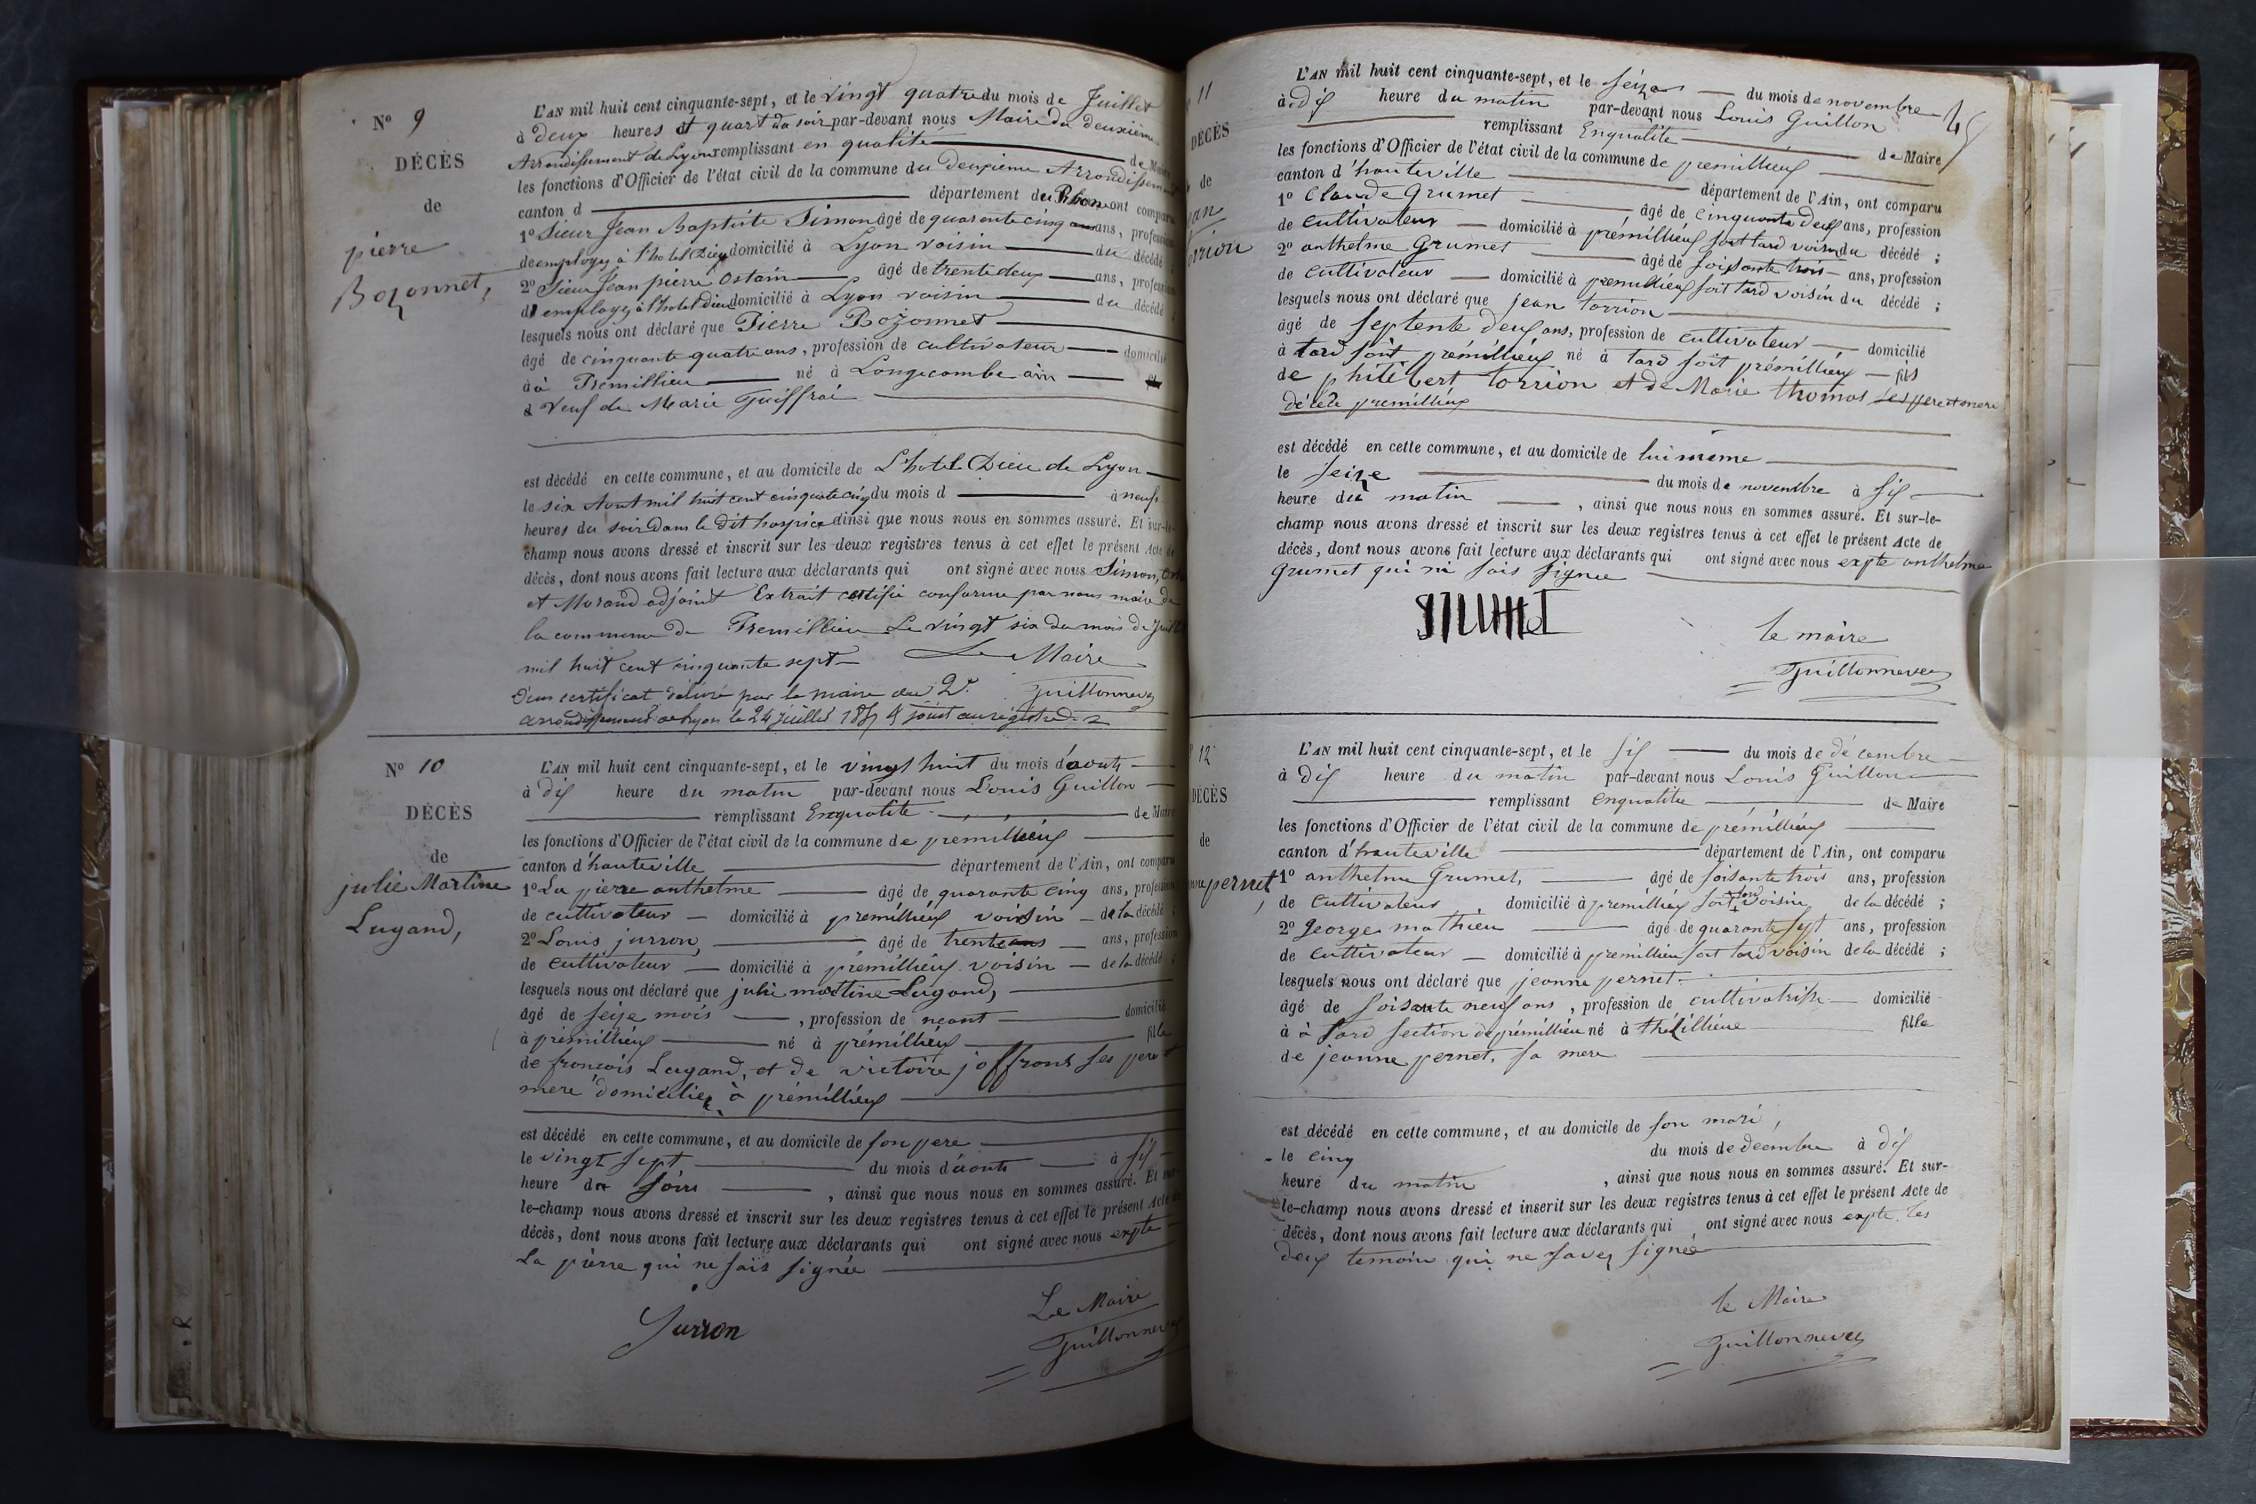 N° 9
DÉCÈS
de
pierre
Bozonnet,
L'AN mil huit cent cinquante-sept, et le vingt quatre du mois de Juillet
à deux heures et quart du soir par-devant nous Maire du deuxième
Arrondissement de Lyon remplissant en qualité de Maire
les fonctions d'Officier de l'état civil de la commune du deuxième Arrondissement
canton d département du Rhône ont comparu
1° Sieur Jean Baptiste Simon âgé de quarante cinq ans, profession
de employé à l'hotel Dieu domicilié à Lyon voisin du décédé ;
2° Sieur Jean pierre Ostain âgé de trente deux ans, profession
d employé à l'hotel dieu domicilié à Lyon voisin du décédé ;
lesquels nous ont déclaré que Pierre Bozonnet
âgé de cinquante quatre ans, profession de cultivateur domicilié
à à Premillieu né à Longecombe ain
veuf de Marie Guiffrai
est décédé en cette commune, et au domicile de L'hotel Dieu de Lyon
le six Aout mil huit cent cinquante cinq du mois d à neuf
heures du soir Dans le dit hospice ainsi que nous nous en sommes assuré. Et sur-le-
champ nous avons dressé et inscrit sur les deux registres tenus à cet effet le présent Acte de
décès, dont nous avons fait lecture aux déclarants qui ont signé avec nous Simon,
et Morand adjoint Extrait certifié conforme par nous maire de
la commune de Premillieu Le vingt six du mois de Juillet
mil huit cent cinquante sept Le Maire
D'un certificat délivré par le maire du 2e Guillonneveu
arrondissement de Lyon le 24 juillet 1857 & joint au registre
N° 10
DÉCÈS
de
julie Martine
Lugand,
L'AN mil huit cent cinquante-sept, et le vingt huit du mois d'aout
à dix heure du matin par-devant nous Louis Guillon
remplissant Enqualité de Maire
les fonctions d'Officier de l'état civil de la commune de prémillieux
canton d'hauteville département de l'Ain, ont comparu
1° La pierre anthelme âgé de quarante cinq ans, profession
de cultivateur domicilié à prémillieux voisin de la décédé ;
2° Louis jurron, âgé de trente ans ans, profession
de cultivateur domicilié à prémillieux voisin de la décédé ;
lesquels nous ont déclaré que julie martine Lugand,
âgé de seize mois , profession de néant domicilié
à prémillieux né à prémillieux fille
de francois Lugand, et de victoire joffront ses pere et
mere domicilier à prémillieux
est décédé en cette commune, et au domicile de son pere
le vingt sept du mois d'aout à six
heure du soire , ainsi que nous nous en sommes assuré. Et sur-
le-champ nous avons dressé et inscrit sur les deux registres tenus à cet effet le présent Acte de
décès, dont nous avons fait lecture aux déclarants qui ont signé avec nous expte
La pierre qui ne sais signée
Jurron
Le Maire
Guillonneveu
11
DÉCÈS
de
torrion
L'AN mil huit cent cinquante-sept, et le seize du mois de novembre
à dix heure du matin par-devant nous Louis Guillon
remplissant Enqualité de Maire
les fonctions d'Officier de l'état civil de la commune de premillieux
canton d'hauteville département de l'Ain, ont comparu
1° Claude Grumet âgé de cinquante deux ans, profession
de cultivateur domicilié à prémillieux soit tard voisin du décédé ;
2° anthelme Grumet âgé de soixante trois ans, profession
de cultivateur domicilié à premillieux soit tard voisin du décédé ;
lesquels nous ont déclaré que jean torrion
âgé de septente deux ans, profession de cultivateur domicilié
à tard soit prémillieux né à tard soit prémillieux fils
de philibert torrion et de Marie thomas ses pere et mere
décédé premillieux
est décédé en cette commune, et au domicile de lui même
le seize du mois de novembre à six
heure du matin , ainsi que nous nous en sommes assuré. Et sur-le-
champ nous avons dressé et inscrit sur les deux registres tenus à cet effet le présent Acte de
décès, dont nous avons fait lecture aux déclarants qui ont signé avec nous expte anthelme
Grumet qui ni sais signee
le maire
Guillonneveu
12
DÉCÈS
de
pernet,
L'AN mil huit cent cinquante-sept, et le six du mois de décembre
à dix heure du matin par-devant nous Louis Guillon
remplissant enqualité de Maire
les fonctions d'Officier de l'état civil de la commune de prémillieux
canton d'hauteville département de l'Ain, ont comparu
1° anthelme Grumet, âgé de soisante trois ans, profession
de Cultivateur domicilié à prémillieux soit tard voisin de la décédé ;
2° George mathieu âgé de quarante sept ans, profession
de cultivateur domicilié à premillieu soit tard voisin de la décédé ;
lesquels nous ont déclaré que jeanne pernet
âgé de soisante neuf ans , profession de cultivatrisse domicilié
à à tard section de prémillieu né à thézillieue fille
de jeanne pernet, sa mere
est décédé en cette commune, et au domicile de son mari,
le cinq du mois de decembre à dix
heure du matin , ainsi que nous nous en sommes assuré. Et sur-
le-champ nous avons dressé et inscrit sur les deux registres tenus à cet effet le présent Acte de
décès, dont nous avons fait lecture aux déclarants qui ont signé avec nous expte les
deux temoin qui ne savez signée
le Maire
Guillonneveu